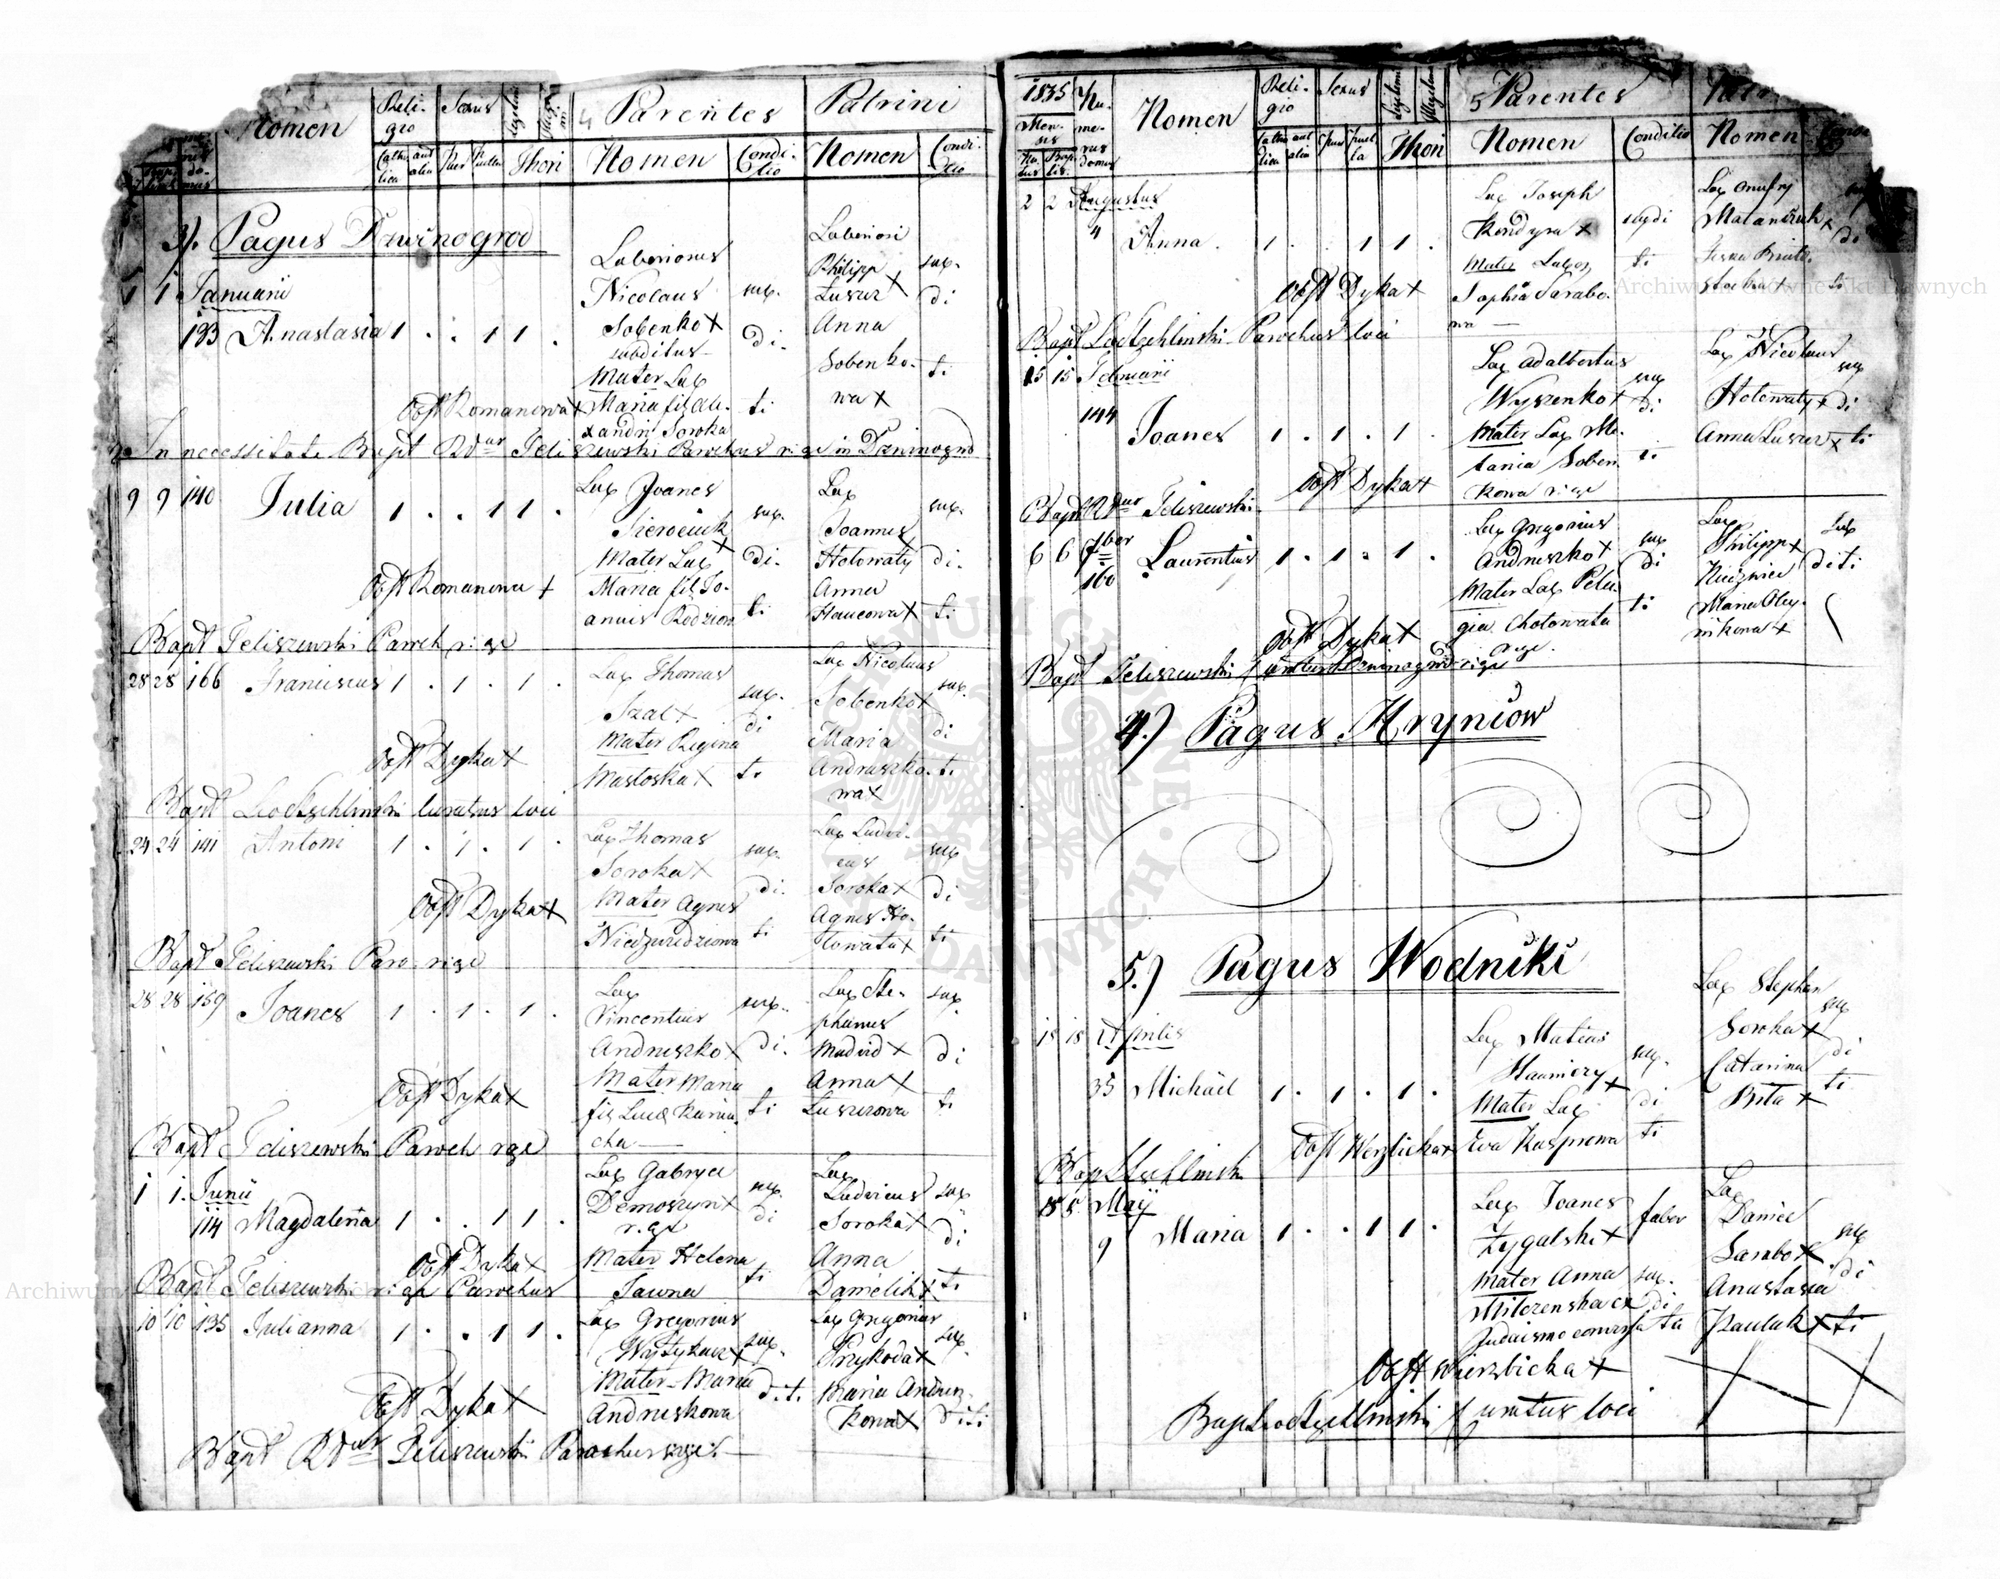 Nomen
Religio
Sexus
Thori
4
Parentes
Patrini
Nomen
Conditio
Nomen
Conditio
3). Pagus Dzwinogrod
1 1 Januarii
193 Anastasia 1 . . 1 1 .
Laboriosus
Nicolaus
Sobenko x
subditus
Mater Lab
Maria fil Ale-
xandri Soroka
sub-
di-
ti
Laboriosi
Philipp
Luszcz x
Anna
Sobenko-
wa x
sub-
di
ti
Obst Romanowa x
In necessitate Bapt Rdus Teliszewski Parochus r: gr in Dzwinogrod
9 9 140 Julia 1 . . 1 1 .
Lab Joanes
Sierociuk x
Mater Lab
Maria fil Jo-
anis Rodzion
sub-
di-
ti
Lab
Joannes
Hołowaty
Anna
Haucowa x
sub-
di-
ti
Obst Romanowa x
Bapt Teliszewski Paroch r: gr
28 28 166 Franciscus 1 . 1 . 1 .
Lab Thomas
Szal x
Mater Regina
Mastoska x
sub-
di
ti
Lab Nicolaus
Sobenko x
Maria
Andruszko-
wa x
sub-
di
ti
Obst Dyka x
Bapt Leo Stechlinski Curatus loci
24 24 141 Antoni 1 . 1 . 1 .
Lab Thomas
Soroka x
Mater Agnes
Niedzwiedziowa
sub-
di-
ti
Lab Ludvi-
cus
Soroka x
Agnes Ho-
łowata x
sub
di
ti
Obst Dyka x
Bapt Teliszewski Paro r: gr
28 28 159 Joanes 1 . 1 . 1 .
Lab
Vincentius
Andruszko x
Mater Maria
fil Lucæ Kania-
cka
sub-
di-
ti
Lab Ste-
phanus
Madvid x
Anna x
Luszczowa
sub
di
ti
Obst Dyka x
Bapt Teliszewski Paroch r: gr
1 1 Junii
114 Magdalena 1 . . 1 1 .
Lab Gabryel
Demoszyn x
r. gr
Mater Helena
Jawna
sub-
di
ti
Lab
Ludvicus
Soroka x
Anna
Danielik x
sub
di
ti
Obst Dyka x
Bapt Teliszewski r: gr Parochus
10 10 135 Julianna 1 . . 1 1 .
Lab Gregorius
Wojtykuz x
Mater Maria
Andruskowa
sub-
diti
Lab Gregorius
Przykoda x
Maria Andrus-
kowa x
sub-
diti
Obst Dyka x
Bapt Rdus Teliszewski Parochus r: gr.
1835
Mensis
Numerus domus
Nomen
Religio
Sexus
Thori
5 Parentes
Nomen
Conditio
Nomen
2 2 Augustus
4 Anna . 1 . . 1 1 .
Lab Joseph
Kondyra x
Mater Lab
Sophia Sarabo-
wa
subdi
ti
Lab Onufry
Matanczuk x
sub
di
ti
Obst Dyka x
Bapt Leo Stechlinski Parochus loci
15 15 Februarii
144
Joanes 1 . 1 . 1 .
Lab Adalbertus
Wyszenko x
Mater Lab Me-
lania Soben
kowa r: gr
sub
di
ti
Lab Nicolaus
Hołowaty x
Anna Luszcz x
sub
di
ti
Obst Dyka x
Bapt Rdus Teliszewski
6 6 9ber
160
Laurentius 1 . 1 . 1 .
Lab Gregorius
Andruszko x
Mater Lab Pela-
gia Chołowata
r: gr.
sub
di
ti
Lab
Philipp x
Niczwiec
Maria Oley-
nikowa x
sub
diti
Obst Dyka x
Bapt Teliszewski Curatus Dzwinogrod r: gr
4.) Pagus Hryniow
5.) Pagus Wodniki
18 18 Aprilis
35 Michael 1 . 1 . 1 .
Lab Mateus
Haumery x
Mater Lab
Eva Kasprowa
sub-
di
ti
Lab Stephan
Soroka x
Catarina
Bita x
sub
di
ti
Obst Werzbicka x
Bap Stechlinski
15 5 Maÿ
9
Maria 1 . . 1 1 .
Lab Joanes
Zygalski x
Mater Anna
Milczenska ex
Judaismo conversa
faber
sub-
di
ta
Lab
Daniel
Sarabo x
Anastasia
Pauluk x
sub
di
ti
Obst Wierzbicka x
Bap Leo Stechlinski Curatus loci
Archiwum Główne Akt Dawnych